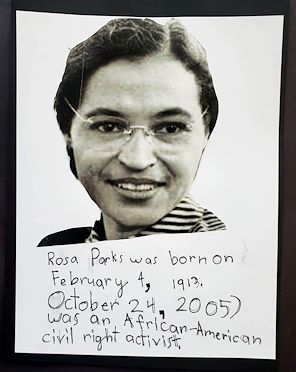 Rosa Parks was born on
February 4, 1913.
October 24, 2005)
was an African-American
civil right activist.